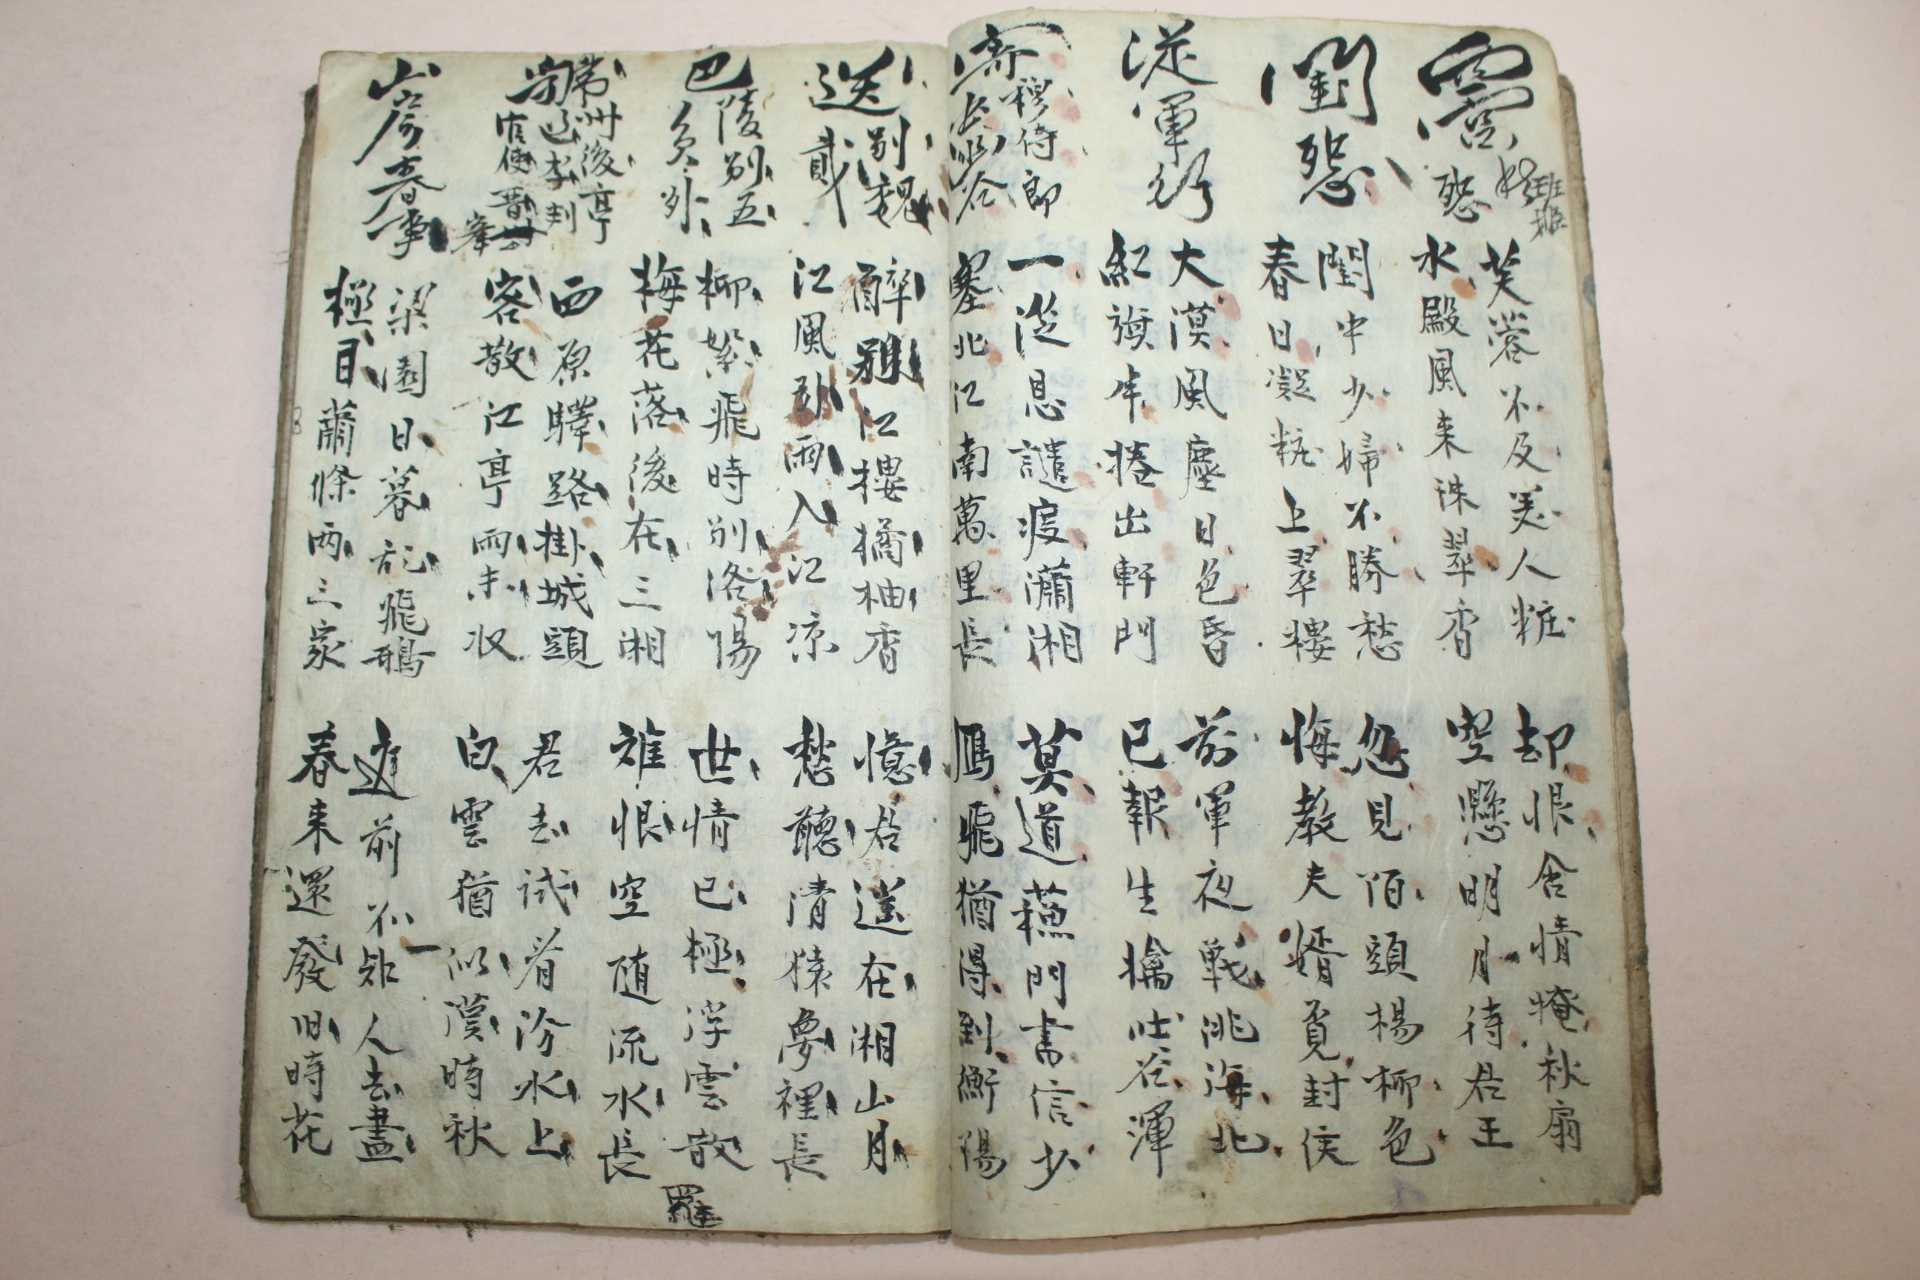 怨
芙蓉不及美人粧
水殿風来珠翠香
却恨含情掩秋扇
空懸明月待君王
閨怨
閨中少婦不勝愁
春日凝粧上翠樓
忽見陌頭楊柳色
悔教夫婿覓封侯
從軍行
大漠風塵日色昏
紅旗半捲出軒門
前軍夜戰洮海北
已報生擒吐谷渾
寄穆侍郎
一從恩譴渡瀟湘
塞北江南萬里長
莫道蘓門書信少
鴈飛猶得到衡陽
送別魏貳
醉別江樓橘柚香
江風引雨入江凉
憶君遥在湘山月
愁聽清猿夢裡長
巴陵別五員外
柳絮飛時別洛陽
梅花落後在三湘
世情已極浮雲散
雖恨空随流水長
羅
常州後亭
李判官使
西原驛路掛城頭
客散江亭雨未収
君去試看汾水上
白雲猶似漢時秋
山房春事
梁園日暮乱飛鴉
極目蕭條兩三家
庭前不知人去盡
春来還發旧時花